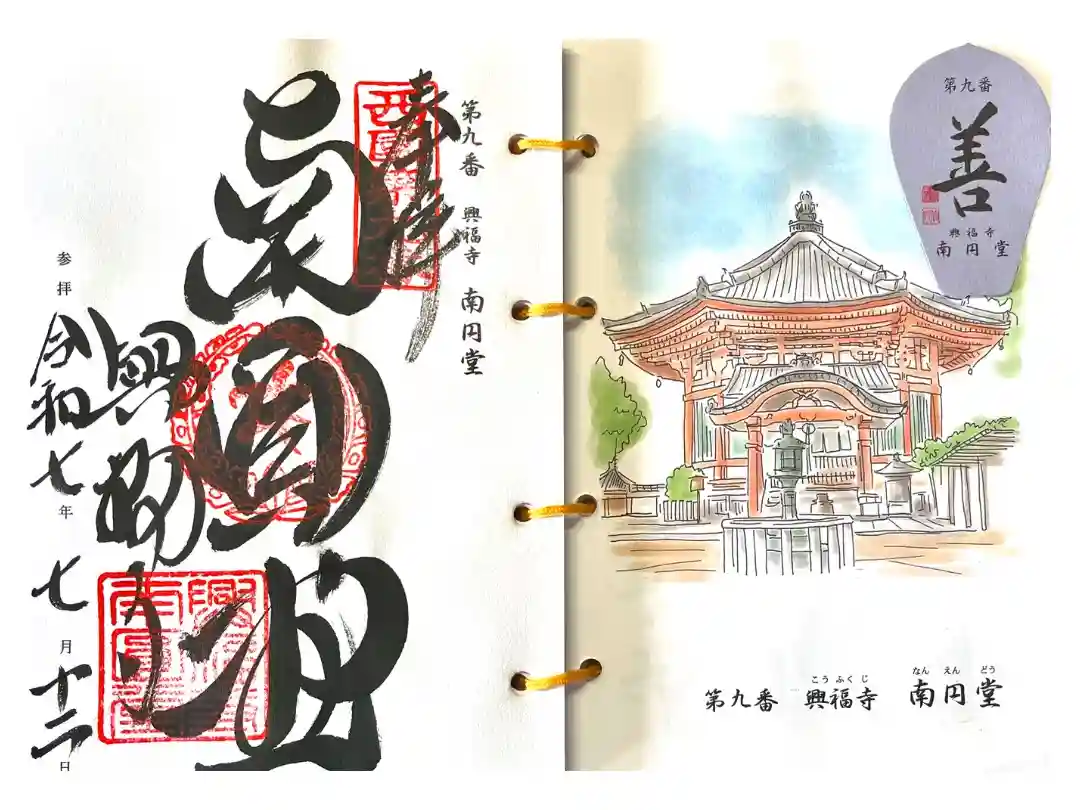 奉拝
第九番 興福寺 南円堂
南圓堂
興福寺
参拝
令和七年七月十二日
第九番
善
興福寺
南円堂
こうふくじ なんえんどう
第九番 興福寺 南円堂